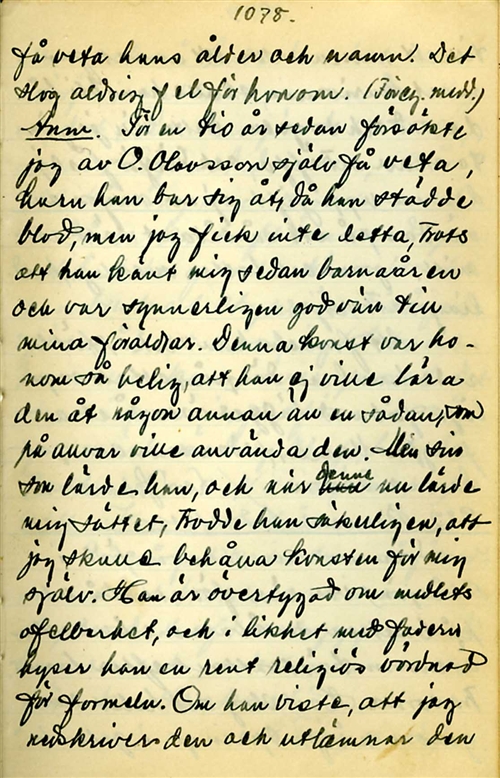 1078.
få veta hans ålder och namn. Det
slog aldrig fel för honom. (Föreg. medd.)
Anm. För en tio år sedan försökte
jag av O. Olavsson själv få veta,
huru han bar sig åt, då han städde
blod, men jag fick inte detta, trots
att han känt mig sedan barnaåren
och var synnerligen god vän till
mina föräldrar. Denna konst var ho-
nom så helig, att han ej ville lära
den åt någon annan än en sådan, som
på allvar ville använda den. Men sin
son lärde han, och när denne nu lärde
mig sättet, trodde han säkerligen, att
jag skulle behålla konsten för mig
själv. Han är övertygad om medlets
ofelbarhet, och i likhet med fadern
hyser han en rent religiös vördnad
för formeln. Om han visste, att jag
nedskriver den och utlämnar den